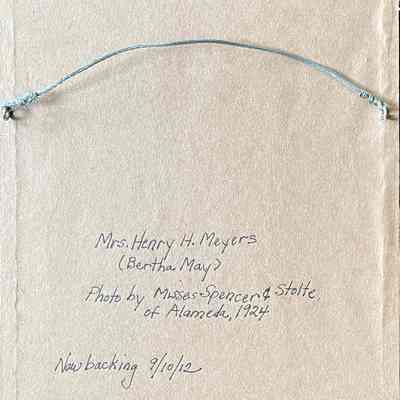 Mrs. Henry H. Meyers
(Bertha May)
Photo by Misses Spencer & Stolte,
of Alameda, 1924
New backing 9/10/12